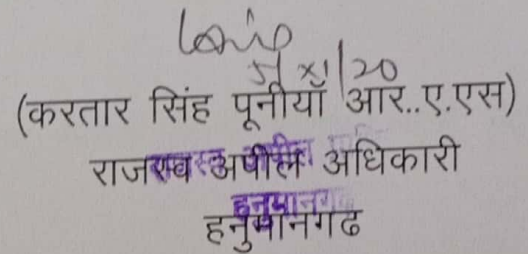 5/XI/20
(करतार सिंह पूनीयाँ आर..ए.एस)
राजस्व अपील अधिकारी
हनुमानगढ